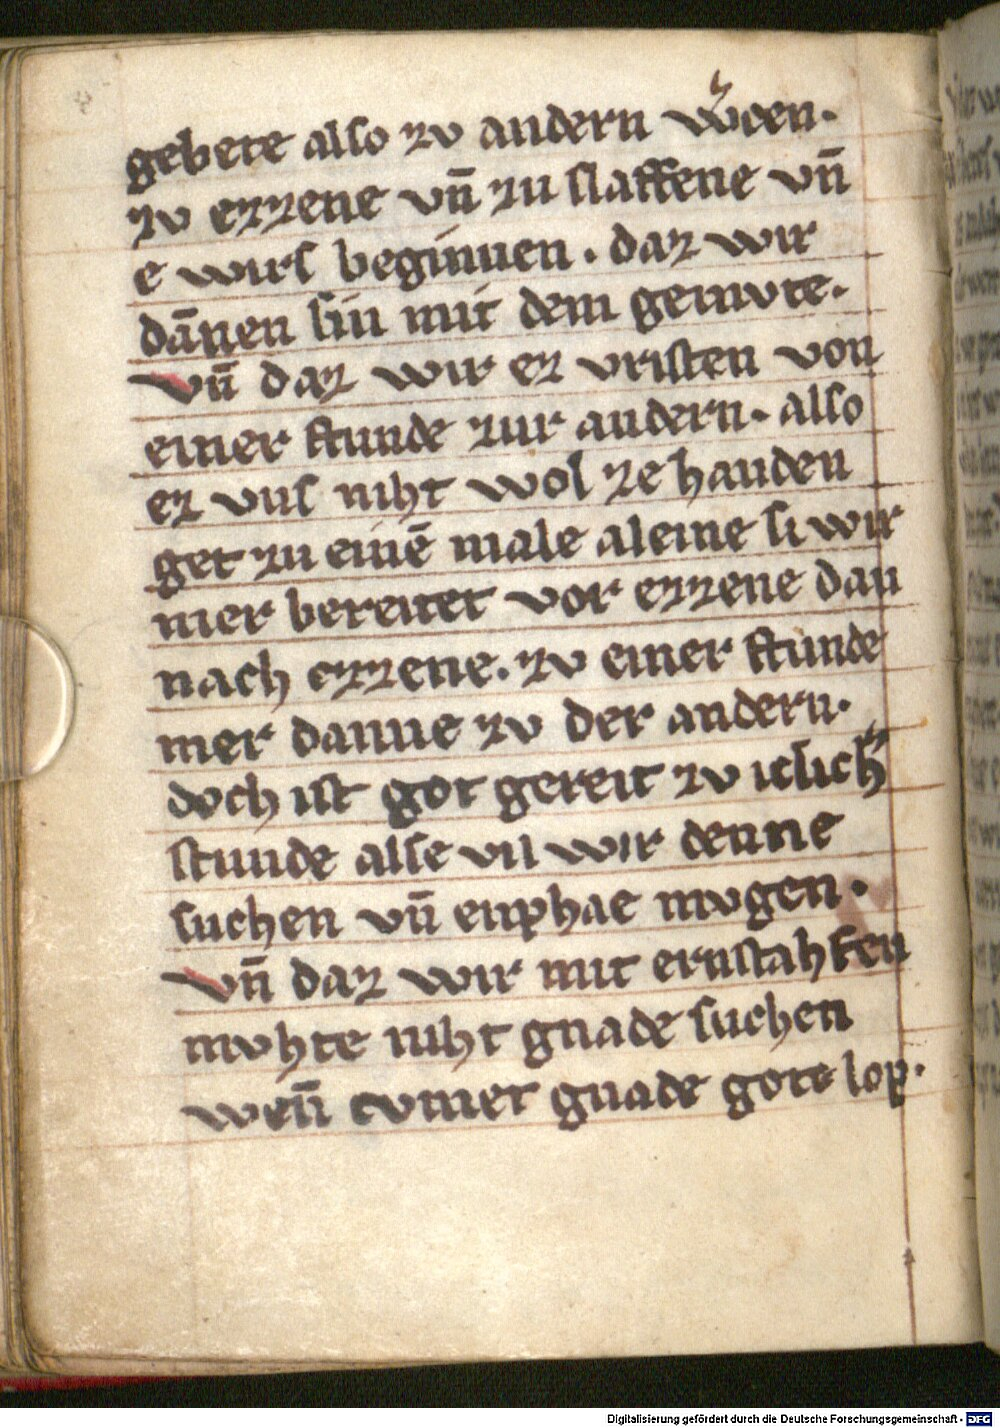 gebete also zv andern w͛cen.
zv ezzene vn̄ zu slaffene vn̄
e wirs beginnen. daz wir
dānen sin mit dem gemvte.
vn̄ daz wir ez vristen von
einer stunde zur andern. also
ez vns niht wol ze handen
get zu einē male aleine si wir
mer bereitet vor ezzene dan
nach ezzene. zv einer stunde
mer danne zv der andern.
doch ist got gereit zv iclich͛
stunde alse vil wir denne
suchen vn̄ enphae mvgen.
vn̄ daz wir mit ernstahften
mvhte niht gnade suchen
wen̄ cvmet gnade gote lop.
Digitalisierung gefördert durch die Deutsche Forschungsgemeinschaft - DFG